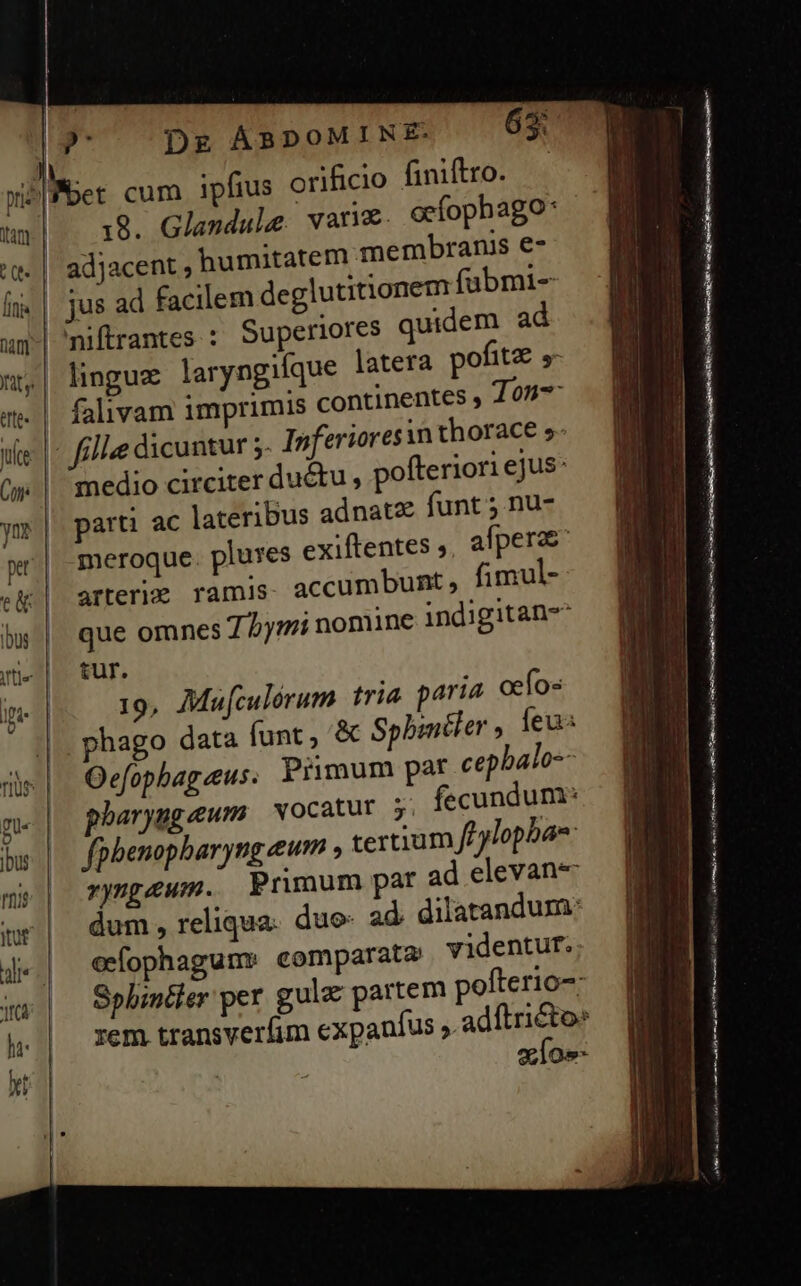 DE ABDOMINE. 63
bet cum ipſius orificio ſiniſtro.
18. Glandulæ variæ œſophago
adjacent, humitatem membranis e-
jus ad facilem deglutitionem ſubmi-
niſtrantes: Superiores quidem ad
linguæ laryngiſque latera poſitæ,
ſalivam imprimis continentes, Ton-
ſillæ dicuntur; Inferiores in thorace,
medio circiter ductu, poſteriori ejus
parti ac lateribus adnatæ ſunt; nu-
meroque plures exiſtentes, aſperæ
arteriæ ramis accumbunt, ſimul-
que omnes Thymi nomine indigitan-
tur.
19, Muſculorum tria paria œſo-
phago data ſunt, & Sphincter, ſeu
Oeſophagæus. Primum par cephalo-
pharyngæum vocatur; ſecundum
ſphenopharyngæum, tertium ſtylopha-
ryngæum. Primum par ad elevan-
dum, reliqua duo ad dilatandum
œſophagum comparata videntur.
Sphincter per gulæ partem poſterio-
rem transverſim expanſus, adſtricto
æſo-